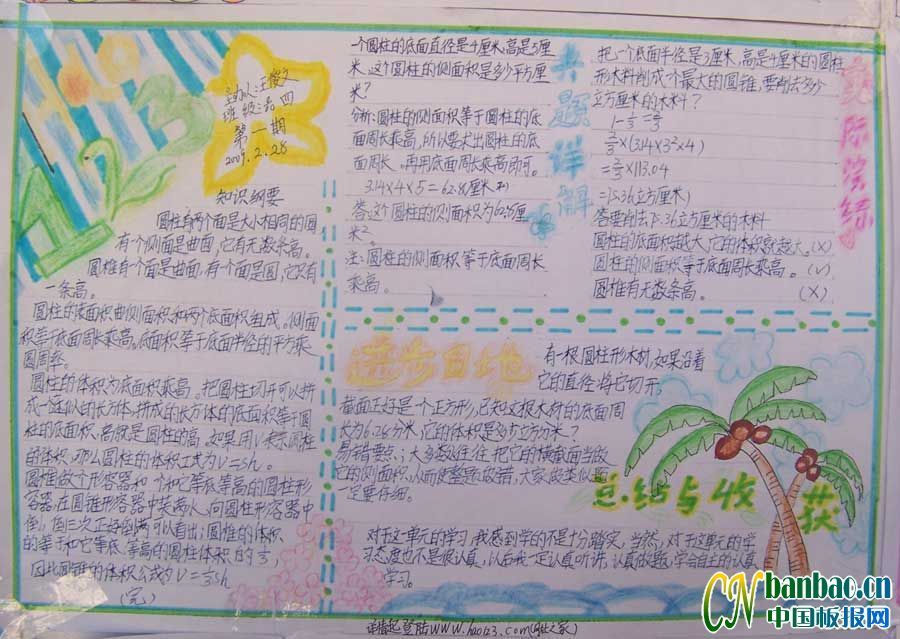 123
主办人:王俊文
班级:品四
第一期
2009.2.28
知识纲要
圆柱有两个面是大小相同的圆
有个侧面是曲面,它有无数条高。
圆柱有个面是曲面,有个面是圆,它只有
一条高。
圆柱的表面积由侧面积和两个底面积组成。侧面
积等于底面周长乘高。底面积等于底面半径的平方乘
圆周率。
圆柱的体积为底面积乘高。把圆柱切开可以拼
成一近似的长方体,拼成的长方体的底面积等于圆
柱的底面积、高就是圆柱的高。如果用V表示圆柱
的体积,那么圆柱的体积公式为V=sh。
圆锥做个形容器和个和它等底等高的圆柱形
容器,在圆锥形容器中装满水、向圆柱形容器中
倒,倒三次正好倒满可以看出:圆锥的体积
的等于和它等底、等高的圆柱体积的1/3,
因此圆锥的体积公式为V=1/3sh
(完)
一个圆柱的底面直径是4厘米,高是5厘
米,这个圆柱的侧面积是多少平方厘
米?
分析:圆柱的侧面积等于圆柱的底
面周长乘高,所以要求出圆柱的底
面周长。再用底面周长乘高即可。
3.14×4×5=62.8(厘米²)
答:这个圆柱的侧面积为62.8厘
米²。
注:圆柱的侧面积等于底面周长
乘高。
题详解
把一个底面半径是3厘米,高是4厘米的圆柱
形木料削成个最大的圆锥,要削去多少
立方厘米的木料?
1-1/3=2/3
2/3×(3.14×3²×4)
=2/3×113.04
=75.36(立方厘米)
答:要削去75.36立方厘米的木料
圆柱的底面积越大,它的体积就越大。(X)
圆柱的侧面积等于底面周长乘高。(√)
圆锥有无数条高。(X)
实际演练
进步自地
有一根圆柱形木材,如果沿着
它的直径将它切开。
截面正好是一个正方形,已知这根木材的底面周
长为6.28分米,它的体积是多少立方分米?
易错要点:大多数人往往把它的横截面当做
它的侧面积,从而使整题做错,大家做类似题
一定要仔细。
总结与收获
对于这单元的学习,我感到学的不是十分踏实,当然,对于这单元的学
习态度也不是很认真,以后我一定认真听讲,认真做题,学会自主的认真
学习。
CN banbao.cn
中国板报网